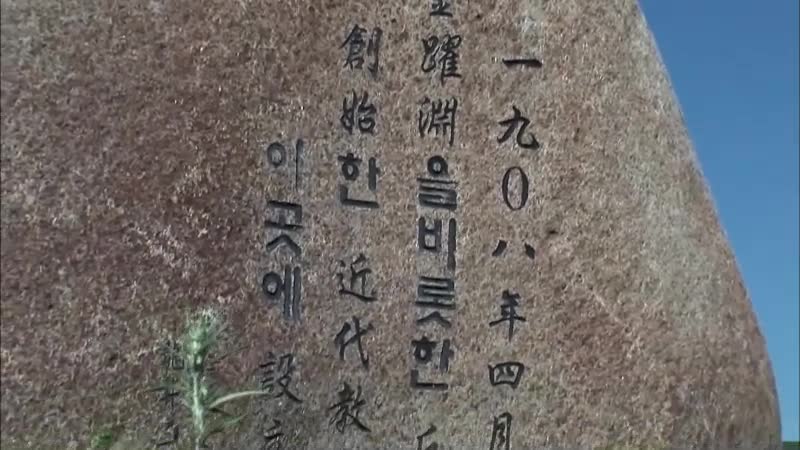 一九0八年四月
躍淵을비롯한
創始한 近代教
이곳에 設